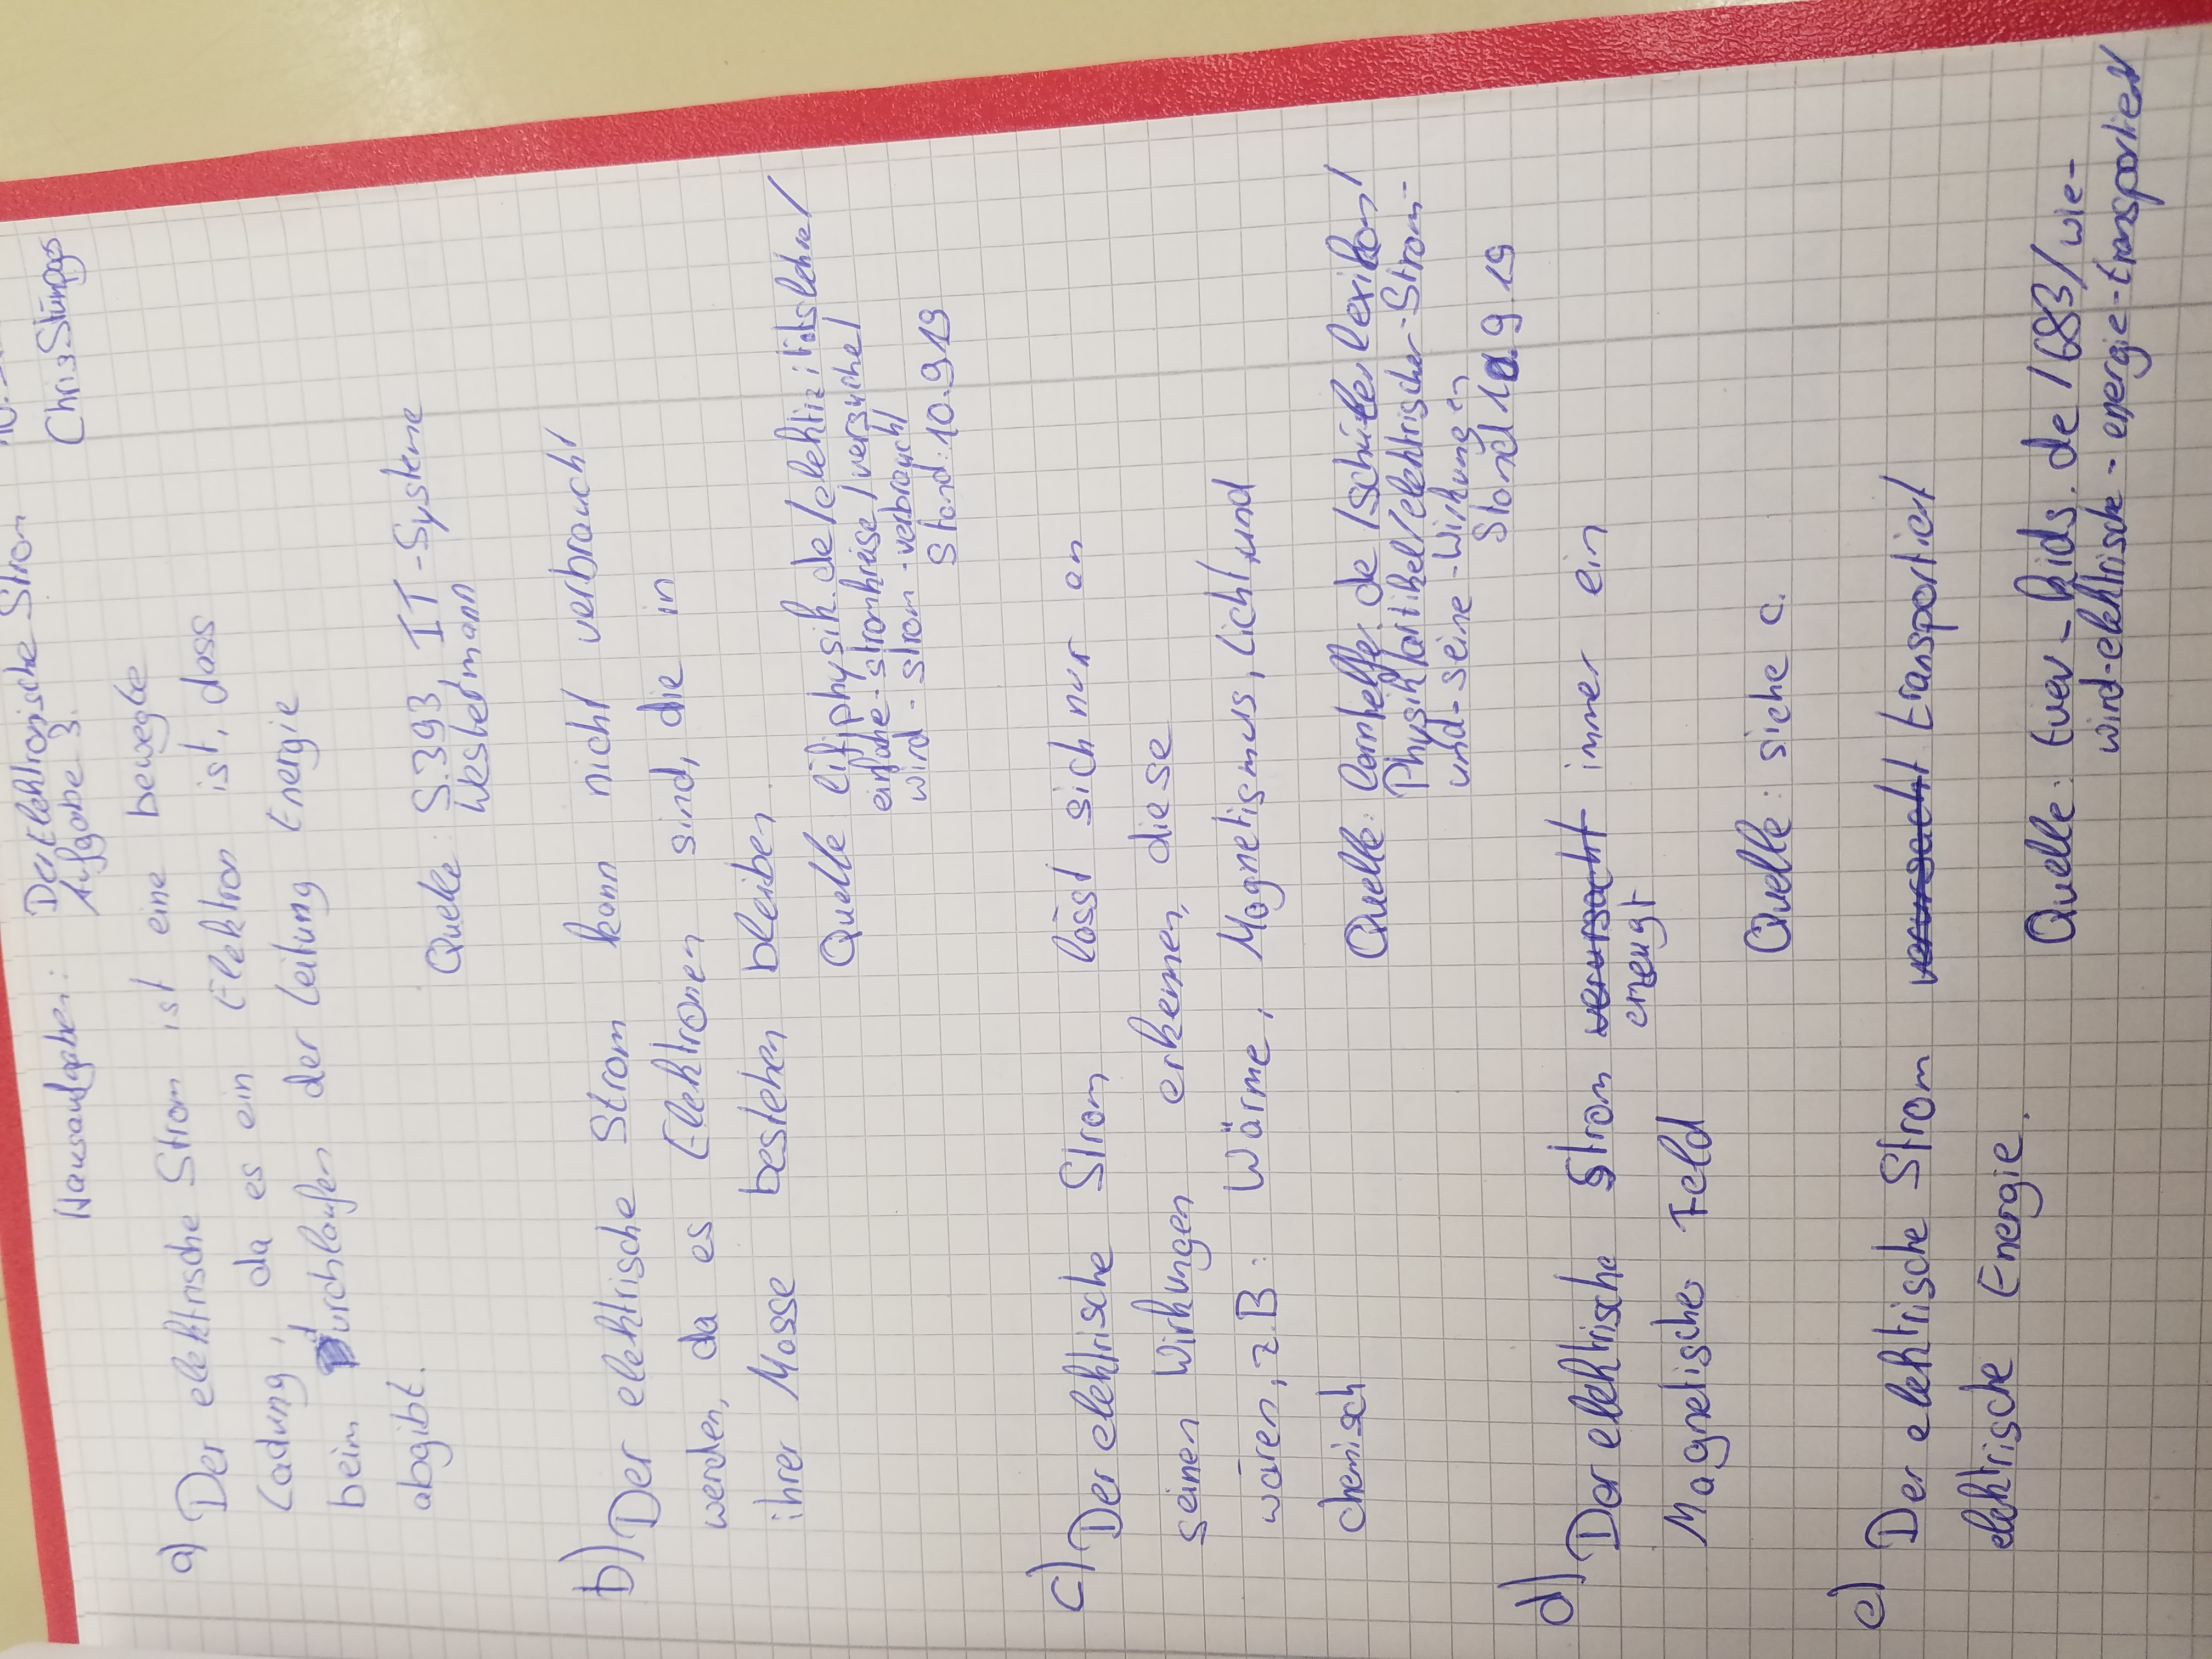 Hausaufgaben: Der Elektronische Strom 10.
Aufgabe 3. Chris Stümpges
a) Der elektrische Strom ist eine bewegte
Ladung, da es ein Elektron ist, dass
beim durchlaufen der Leitung Energie
abgibt.
Quelle: S.393, IT-Systeme
Westermann
b) Der elektrische Strom kann nicht verbraucht
werden, da es Elektronen sind, die in
ihrer Masse bestehen bleiben.
Quelle leifiphysik.de/elektizitätslehre/
einfache-stromkreise/versuche/
wird-strom-verbraucht
Stand: 10.9.19
c) Der elektrische Strom lässt sich nur an
seinen Wirkungen erkennen, diese
wären, z.B: Wärme, Magnetismus, Licht und
chemisch
Quelle: lernhelfer.de/schülerlexikon/
Physik/artikel/elektrischer-Strom-
und-seine-Wirkungen
Stand 10.9.19
d) Der elektrische Strom verursacht immer ein
erzeugt
Magnetisches Feld
Quelle: siehe c.
e) Der elektrische Strom verursacht transportiert
elektrische Energie.
Quelle: tuev-kids.de/683/wie-
wird-elektrische-energie-transportiert